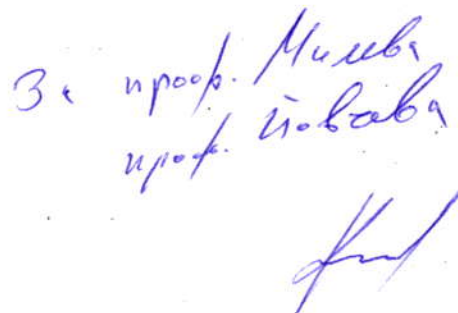 За проф. Милева
проф. Йовева